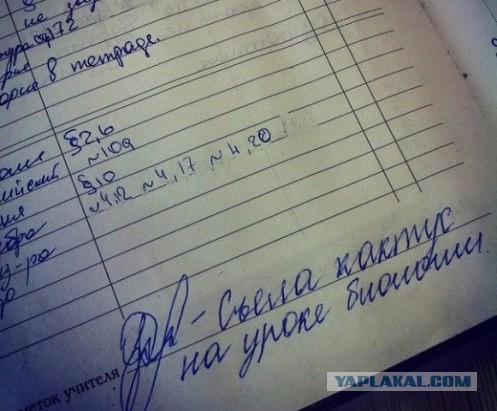 не за
ура стр 72
в тетраде.
§26
№109
§10
№4,12 №4,17 №4,20
- Съела кактус
на уроке биологии.
меток учителя
YAPLAKAL.COM